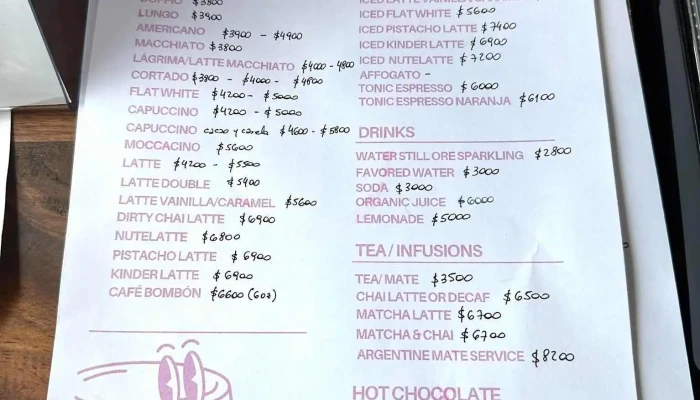 DOPPIO $3800
LUNGO $3900
AMERICANO $3900 - $4900
MACCHIATO $3800
LÁGRIMA/LATTE MACCHIATO $4000 - 4800
CORTADO $3900 - $4000 - $4800
FLAT WHITE $4200 - $5000
CAPUCCINO $4200 - $5000
CAPUCCINO cacao y canela $4600 - $5800
MOCCACINO $5600
LATTE $4200 - $5500
LATTE DOUBLE $5400
LATTE VAINILLA/CARAMEL $5600
DIRTY CHAI LATTE $6900
NUTELATTE $6800
PISTACHO LATTE $6900
KINDER LATTE $6900
CAFÉ BOMBÓN $6600 (6oz)
ICED FLAT WHITE $5600
ICED PISTACHO LATTE $7400
ICED KINDER LATTE $6900
ICED NUTELATTE $7200
AFFOGATO -
TONIC ESPRESSO $6000
TONIC ESPRESSO NARANJA $6100
DRINKS
WATER STILL ORE SPARKLING $2800
FAVORED WATER $3000
SODA $3000
ORGANIC JUICE $6000
LEMONADE $5000
TEA/ INFUSIONS
TEA/ MATE $3500
CHAI LATTE OR DECAF $6500
MATCHA LATTE $6700
MATCHA & CHAI $6700
ARGENTINE MATE SERVICE $8200
HOT CHOCOLATE